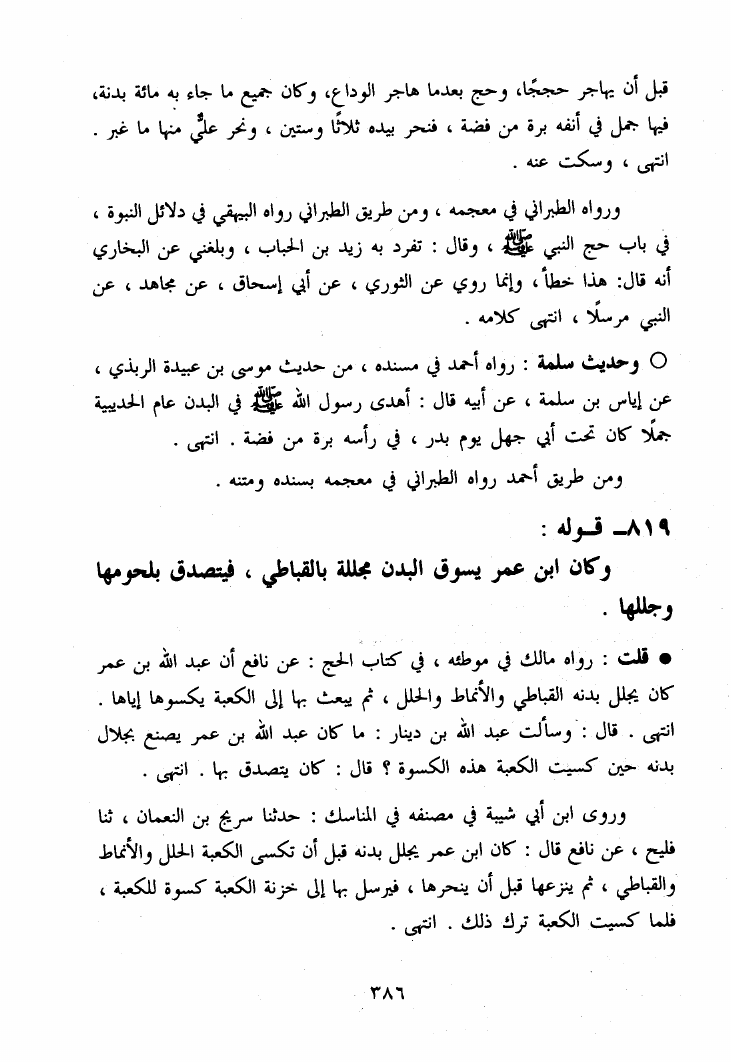 قبل أن يهاجر حججًا، وحج بعدما هاجر الوداع، وكان جميع ما جاء به مائة بدنة،
فيها جمل في أنفه برة من فضة ، فنحر بيده ثلاثًا وستين ، ونحر عليٌّ منها ما غبر .
انتهى ، وسكت عنه .
ورواه الطبراني في معجمه ، ومن طريق الطبراني رواه البيهقي في دلائل النبوة ،
في باب حج النبي ﷺ ، وقال : تفرد به زيد بن الحباب ، وبلغني عن البخاري
أنه قال: هذا خطأ، وإنما روي عن الثوري ، عن أبي إسحاق ، عن مجاهد ، عن
النبي مرسلًا ، انتهى كلامه .
○ وحديث سلمة : رواه أحمد في مسنده ، من حديث موسى بن عبيدة الربذي ،
عن إياس بن سلمة ، عن أبيه قال : أهدى رسول الله ﷺ في البدن عام الحديبية
جملًا كان تحت أبي جهل يوم بدر ، في رأسه برة من فضة . انتهى .
ومن طريق أحمد رواه الطبراني في معجمه بسنده ومتنه .
٨١٩ــ قــوله :
وكان ابن عمر يسوق البدن مجللة بالقباطي ، فيتصدق بلحومها
وجللها .
● قلت : رواه مالك في موطئه ، في كتاب الحج : عن نافع أن عبد الله بن عمر
كان يجلل بدنه القباطي والأنماط والحلل ، ثم يبعث بها إلى الكعبة يكسوها إياها .
انتهى . قال : وسألت عبد الله بن دينار : ما كان عبد الله بن عمر يصنع بجلال
بدنه حين كسيت الكعبة هذه الكسوة ؟ قال : كان يتصدق بها . انتهى .
وروى ابن أبي شيبة في مصنفه في المناسك : حدثنا سريج بن النعمان ، ثنا
فليح ، عن نافع قال : كان ابن عمر يجلل بدنه قبل أن تكسى الكعبة الحلل والأنماط
والقباطي ، ثم ينزعها قبل أن ينحرها ، فيرسل بها إلى خزنة الكعبة كسوة للكعبة ،
فلما كسيت الكعبة ترك ذلك . انتهى .
٣٨٦